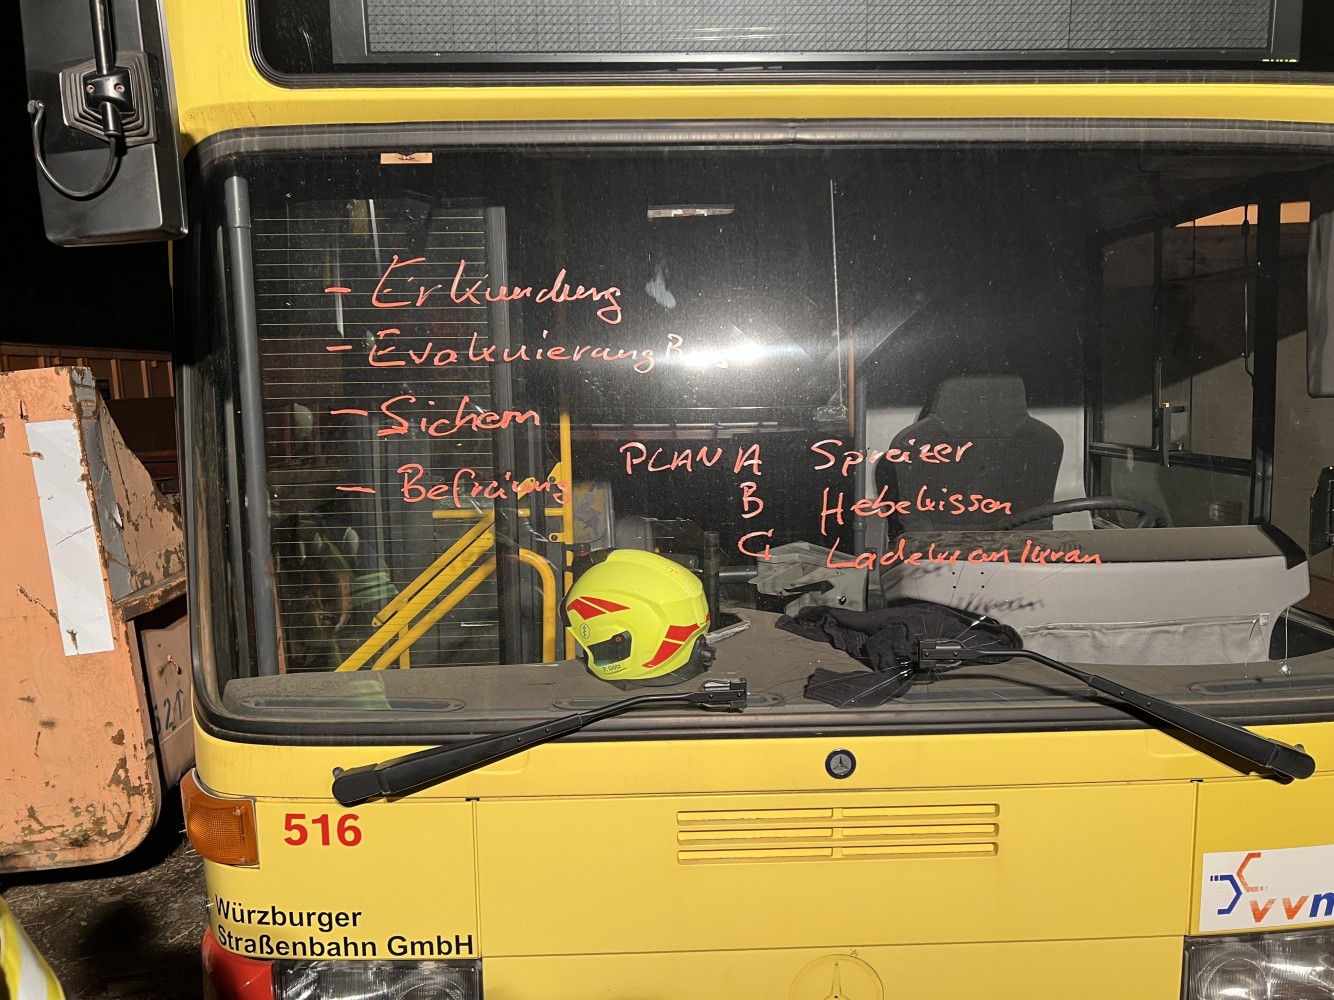 - Erkundung
- Evakuierung
- Sichern
- Befreiung
PLAN A Spreizer
B Hebekissen
C Ladekran kran
516
Würzburger
Straßenbahn GmbH
vvm